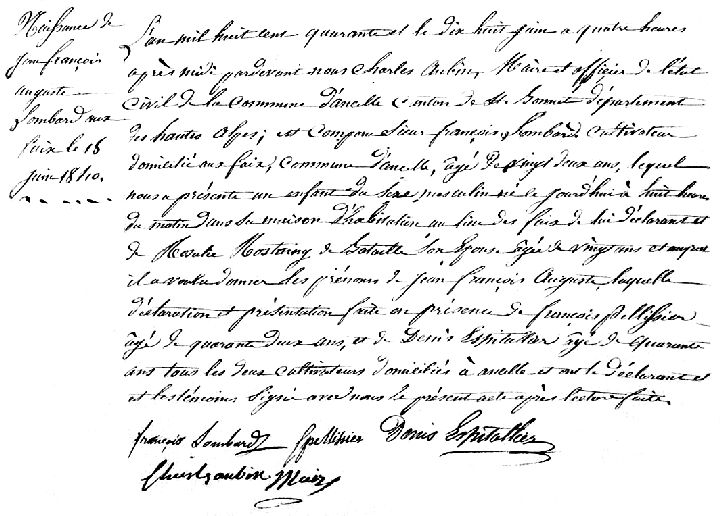 Naissance de
jean françois
auguste
Lombard aux
faix le 18
juin 1840.
L'an mil huit cent quarante et le dix huit juin a quatre heures
après midi pardevant nous Charles Aubin, Maire et officier de l'état
civil de la Commune d'ancelle canton de St. Bonnet département
des hautes alpes; est comparu Sieur françois Lombard cultivateur
domicilié aux faix, Commune d'ancelle, âgé de vingt deux ans, lequel
nous a présenté un enfant du sexe masculin né ce jourd'hui à huit heures
du matin dans sa maison d'habitation au lieu des faix de lui déclarant et
de Rosalie Rostaing de Bataille son épouse âgée de vingt ans et auquel
il a voulu donner les prénoms de jean françois Auguste, laquelle
déclaration et présentation faite en présence de françois pellissier
âgé de quarante deux ans, et de Denis Espitallier âgé de quarante
ans tous les deux cultivateurs domiciliés à ancelle et ont le déclarant et
et les témoins signé avec nous le présent acte après lecture faite.
françois Lombard f pellissier Denis Espitallier
Charles aubin Maire